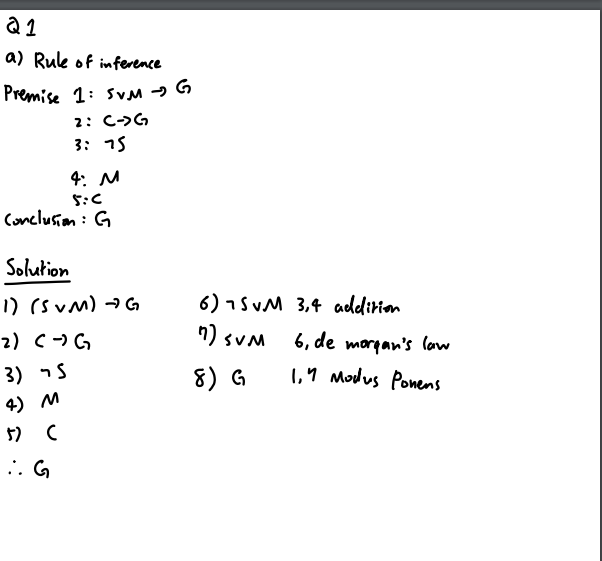 Q1
a) Rule of inference
Premise 1: S∨M → G
2: C→G
3: ¬S
4: M
5: C
Conclusion : G
Solution
1) (S∨M) → G
2) C → G
3) ¬S
4) M
5) C
∴ G
6) ¬S∨M 3,4 addition
7) S∨M 6, de morgan's law
8) G 1,7 Modus Ponens